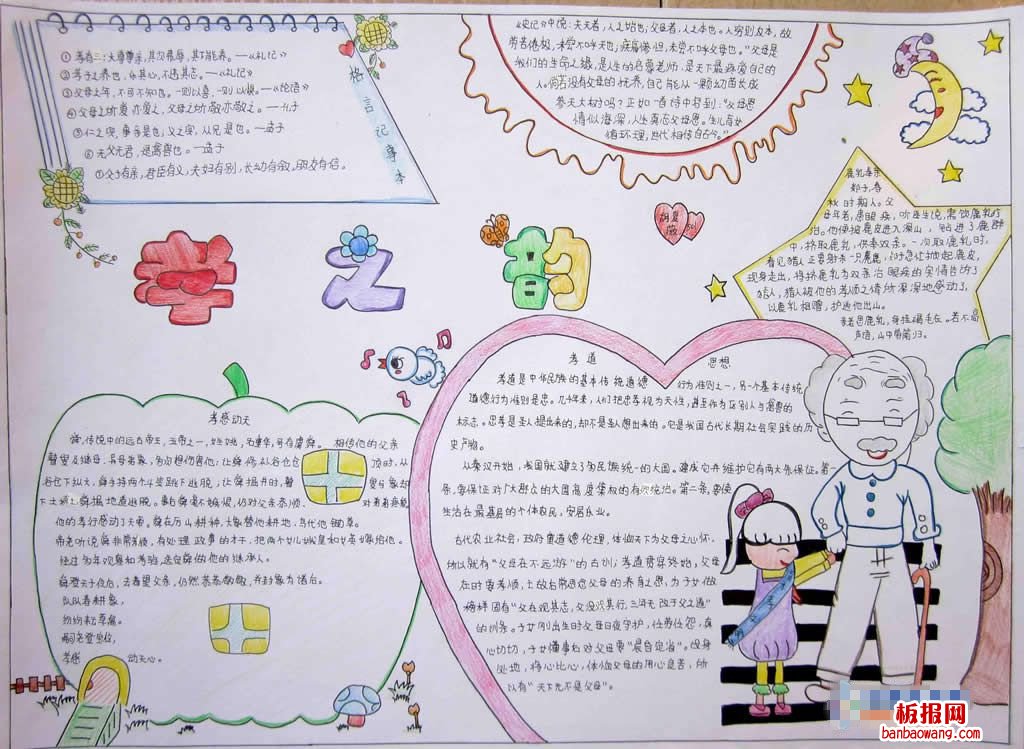 ①孝有三:大尊尊亲,其次弗辱,其下能养。——《礼记》
②孝子之养也,乐其心,不违其志。——《礼记》
③父母之年,不可不知也。一则以喜,一则以惧。——《论语》
④父母之所爱亦爱之,父母之所敬亦敬之。——孔子
⑤仁之实,事亲是也;义之实,从兄是也。——孟子
⑥无父无君,是禽兽也。——孟子
⑦父子有亲,君臣有义,夫妇有别,长幼有叙,朋友有信。
格言记事本
《史记》中说:夫天者,人之始也;父母者,人之本也。人穷则反本,故
劳苦倦极,未尝不呼天也;疾痛惨怛,未尝不呼父母也。"父母是
我们的生命之源,是人生的启蒙老师,是天下最疼爱自己的
人。倘若没有父母的抚养,自己能从一颗幼苗长成
参天大树吗?正如一首诗中写到:"父母恩
情似海深,人生莫忘父母恩。生儿育女
循环理,世代相传自古今。"
鹿乳奉亲
郯子,春
秋时期人。父
母年老,患眼疾,
需饮鹿乳疗
治。他便披鹿皮进入深山,钻进了鹿群
中,挤取鹿乳,供奉双亲。一次取鹿乳时,
看见猎人正要射杀一只麂鹿,
掀起鹿皮,
现身走出,将挤鹿乳为双亲治眼疾的实情告诉了
猎人,猎人被他的孝顺之情所深深地感动了,
以鹿乳相赠,护送他出山。
老思鹿乳,身挂褐毛衣。若不高
声语,山中带箭归。
孝之韵
孝感动天
舜,传说中的远古帝王,五帝之一,姓姚,名重华,号有虞舜。相传他的父亲
瞽叟及继母、异母弟象,多次想伤害他:让舜修补谷仓仓顶时,从
谷仓下纵火,舜手持两个斗笠跳下逃脱;让舜掘井时,瞽叟与象却
下土填井,舜掘地道逃脱。事后舜毫不嫉恨,仍对父亲恭顺、对弟弟慈爱
他的孝行感动了天帝。舜在历山耕种,大象替他耕地,鸟代他锄草。
帝尧听说舜非常孝顺,有处理政事的才干,把两个女儿娥皇和女英嫁给他。
经过多年观察和考验,选定舜做他的继承人。
舜登天子位后,去看望父亲,仍然恭恭敬敬,并封象为诸侯。
队队春耕象,
纷纷耘草禽。
嗣尧登宝位,
孝感动天心。
孝道思想
孝道是中华民族的基本传统道德行为准则之一,另一个基本传统
道德行为准则是忠。几千年来,人们把忠孝视为天性,甚至作为区别人与禽兽的
标志。忠孝是圣人提出来的,却不是圣人想出来的。它是我国古代长期社会实践的历
史产物。
从秦汉开始,我国就建立了多民族统一的大国。建成它并维护它有两大条保证。第一
条,要保证对广大群众的大国高度集权的有效统治。第二条,要使
生活在最基层的个体农民,安居乐业。
古代农业社会,政府重道德伦理,体恤天下为父母之心怀,
所以就有"父母在不远游"的古训;孝道贯穿始终,父母
在时要孝顺,
父母的养育之恩,为子女做
榜样固有"父在观其志,父没观其行,三年无改于父之道"
的训条。子女则出生时父母日夜守护,任劳任怨,真
心切切,子女懂事后对父母要"晨昏定省"。设身
处地,将心比心,体恤父母的用心良苦,所
以有"天下无不是父母"。
板报网
banbaowang.com